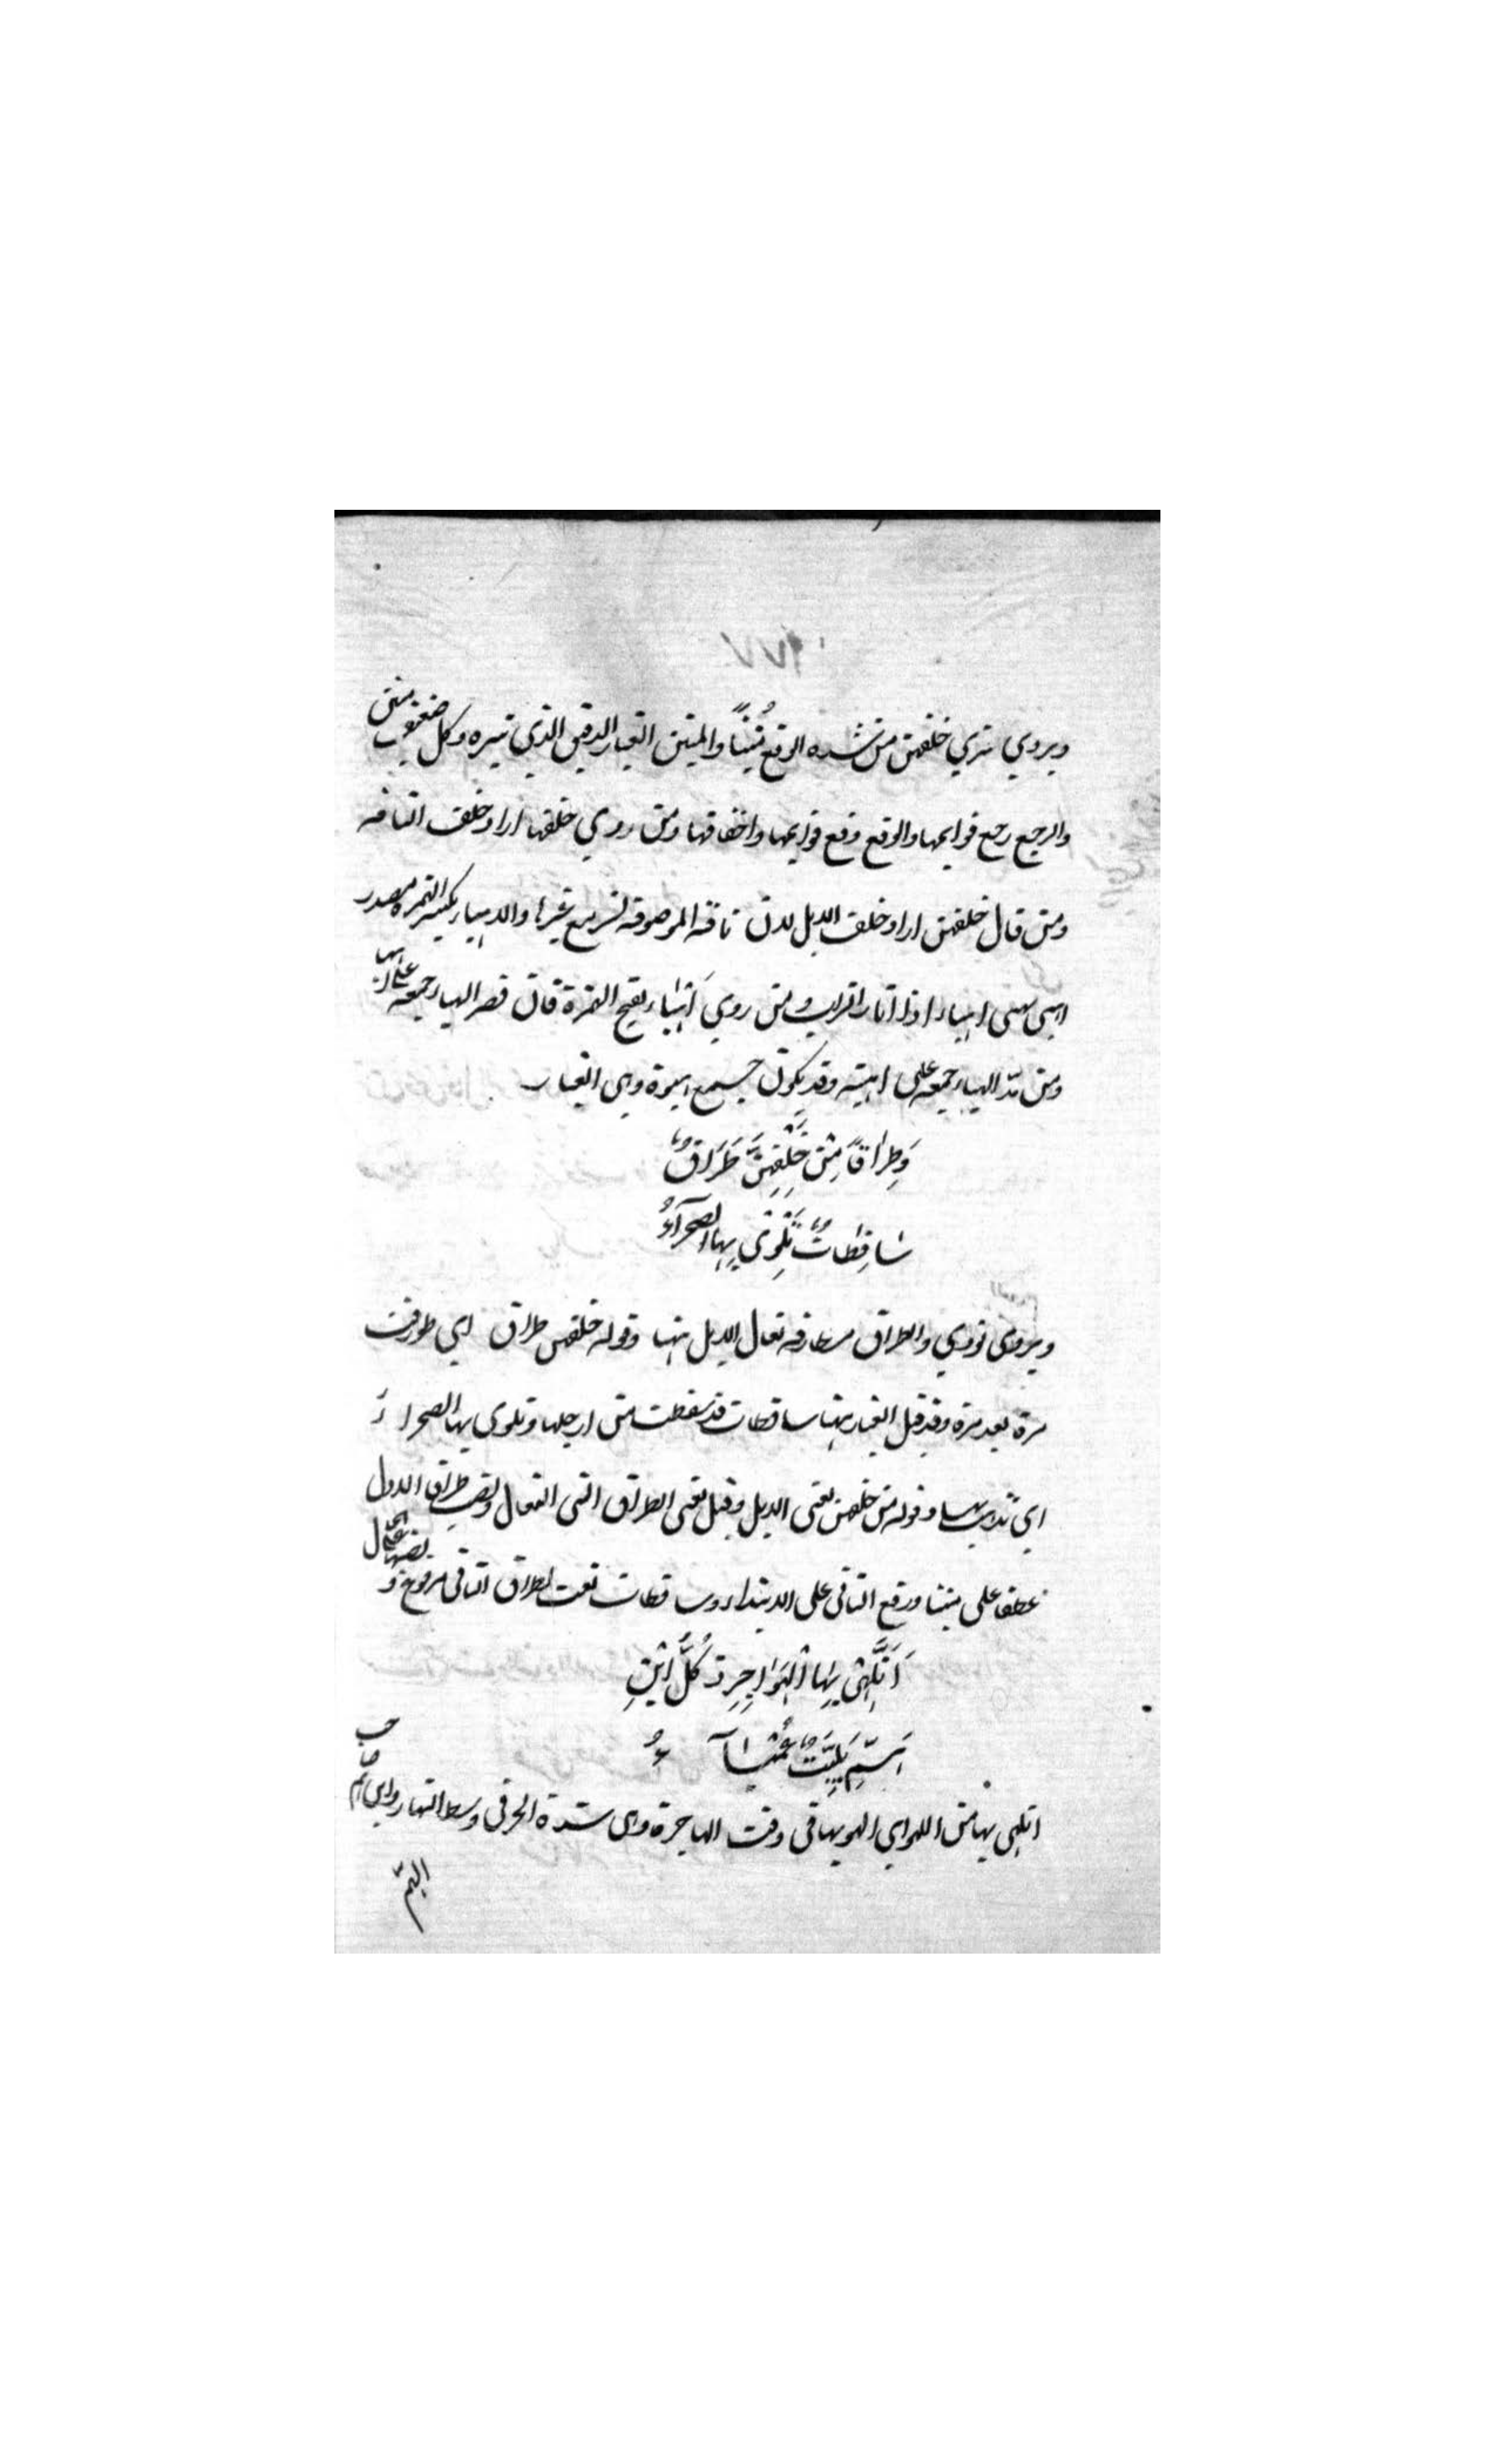 ١٧٧
ويروي تري خلفهن من شدة الوقع منينًا والمنين الغبار الدقيق الذي تثيره وكل ضعيف منين
والرجع رجع قوايمها والوقع وقع قوايمها واخفافها ومن روي خلفها اراد خلف الناقه
ومن قال خلفهن اراد خلف الابل لان ناقه الموصوفه تسر مع غيرها والاهباء بكسر الهمزه مصدر
اهبى يهبى اهباء اذا اثار التراب ومن روي اَهْبَاء بفتح الهمزة فان قصر الهباء جمعه على اهبا
ومن مدّ الهباء جمعه على اهبية وقد يكون جمع هبوة وهي الغبار
وَطِرَاقًا مِنْ خَلْفِهِنَّ طِرَاقٌ
سَاقِطَاتٌ تَلْوِي بِهَا الصَّحْرَآءُ
ويروى تودي والطراق مطارقه نعال الابل هنا وقوله خلفهن طراق اي طورقت
مرة بعد مرة وقد قيل الغبار هنا ساقطات قد سقطت من ارجلها وتلوي بها الصحراء
اي تذهب بها وقوله من خلفهن يعني الابل وقيل يعني الطراق التي النعال ونصب طراق الاول
عطفا على منينا ورفع الثاني على الابتداء وساقطات نعت لطراق الثاني مرفوع و نصبها على الحال
اَتَلَهَّى بِهَا الْهَوَاجِرِ ذ كُلُّ ابْنِ
هَمٍّ بَلِيَّةٌ عَمْيَآءُ
اتلهى بها من اللهو اي الهو بها في وقت الهاجرة وهي شدة الحر في وسط النهار وابن هم صاحب
الهمّ